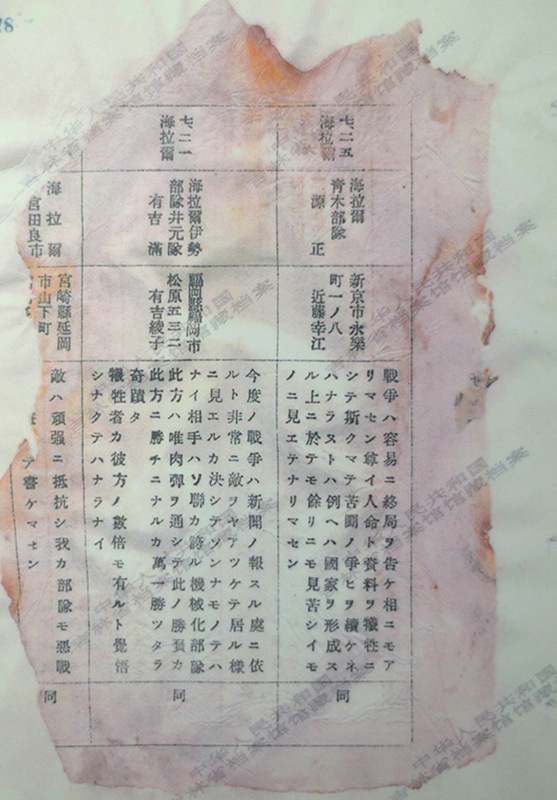 78
七、二五
海拉爾
海拉爾
青木部隊
源 正
新京市永樂
町一ノ八
近藤幸江
戰爭ハ容易ニ終局ヲ告ケ相ニモア
リマセン尊イ人命ト資料ヲ犧牲ニ
シテ斯クマテ苦鬪ノ爭ヒヲ續ケネ
ハナラヌトハ例ヘハ國家ヲ形成ス
ル上ニ於テモ餘リニモ見苦シイモ
ノニ見ヱテナリマセン
同
七、二一
海拉爾
海拉爾伊勢
部隊井元隊
有吉 滿
福岡縣福岡市
松原五三二
有吉綾子
今度ノ戰爭ハ新聞ノ報スル處ニ依
ルト非常ニ敵ヲヤアツケテ居ル樣
ニ見エルカ決シテソンナモノテハ
ナイ相手ハソ聯カ誇ル機械化部隊
此方ハ唯肉彈ヲ通シテ此ノ勝負カ
此方ニ勝チニナルカ萬一勝ツタラ
奇蹟タ
犧牲者カ彼方ノ數倍モ有ルト覺悟
シナクテハナラナイ
同
海拉爾
宮田良市
宮崎縣延岡
市山下町
敵ハ頑强ニ抵抗シ我カ部隊モ惡戰
テ書ケマセン
中华人民共和国
吉林省档案馆馆藏档案